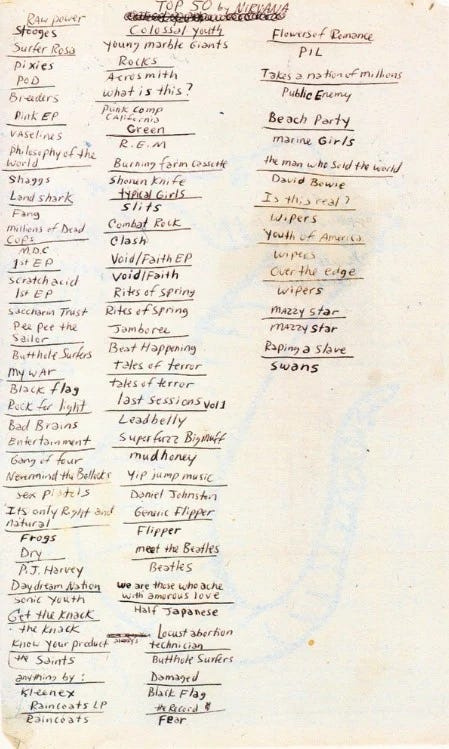 TOP 50 by NIRVANA
Raw power
Stooges
Surfer Rosa
Pixies
POD
Breeders
Pink EP
Vaselines
Philosophy of the
world
Shaggs
Land shark
Fang
millions of Dead
Cops
M.D.C
1st EP
Scratch acid
1st EP
Saccharin Trust
Pee Pee the
Sailor
Butthole Surfers
My WAr
Black flag
Rock for light
Bad Brains
Entertainment
Gang of four
Nevermind the Bollocks
sex pistols
Its only Right and
natural
Frogs
Dry
P.J. Harvey
Daydream Nation
Sonic Youth
Get the Knack
the Knack
Know your product
the Saints
anything by:
Kleenex
Raincoats LP
Raincoats
Colossal Youth
Young marble Giants
Rocks
Aerosmith
What is this?
Punk Comp
California
Green
R.E.M
Burning farm Cassette
Shonen Knife
typical Girls
Slits
Combat Rock
Clash
Void/Faith EP
Void/Faith
Rites of Spring
Rites of Spring
Jamboree
Beat Happening
tales of terror
tales of terror
last sessions Vol 1
Leadbelly
Superfuzz Bigmuff
mudhoney
Yip jump music
Daniel Johnston
Generic Flipper
Flipper
meet the Beatles
Beatles
we are those who ache
with amorous love
Half Japanese
Locust abortion
technician
Butthole Surfers
Damaged
Black Flag
the Record
Fear
Flowers of Romance
PIL
Takes a nation of millions
Public Enemy
Beach Party
marine Girls
the man who Sold the world
David Bowie
Is this real?
Wipers
Youth of America
Wipers
Over the edge
Wipers
mazzy star
mazzy star
Raping a slave
Swans